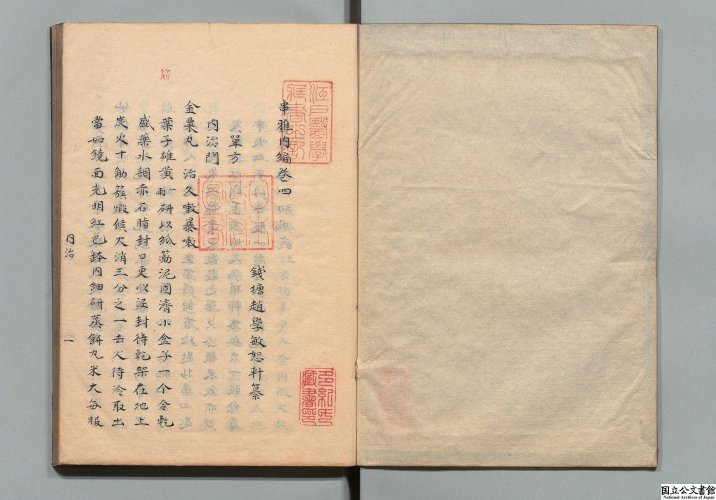 串雅內編卷四
錢塘趙學敏恕軒纂
單方
內治門
金粟丸 治久嗽暴嗽
葉子雄黃研以紙筋泥固濟小盒子一个令乾
盛藥水調赤石脂封口更以泥封待乾架在地上
炭火十觔簇煅候火消三分之一去火待冷取出
當如鏡面光明紅色鉢內細研蒸餅丸米大每服
筋
內治
一
江戶醫學
藏書之記
多紀氏
藏書印
国立公文書館
National Archives of Japan